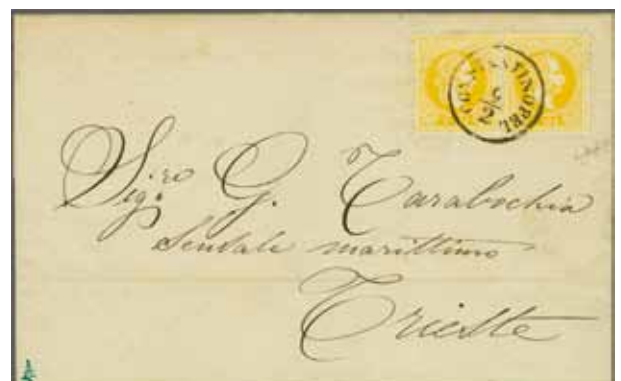 CONSTANTINOPEL
2
Sigre G. Tarabochia
Sensale marittimo
Trieste